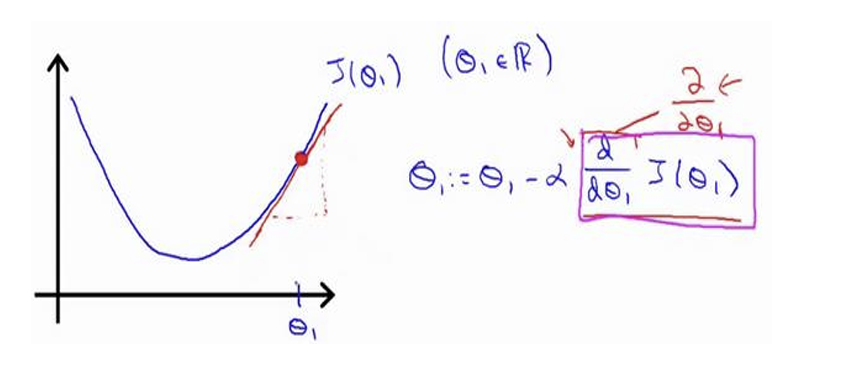 J(θ₁) (θ₁ ∈ ℝ)
∂/∂θ₁
θ₁ := θ₁ - α d/dθ₁ J(θ₁)
θ₁